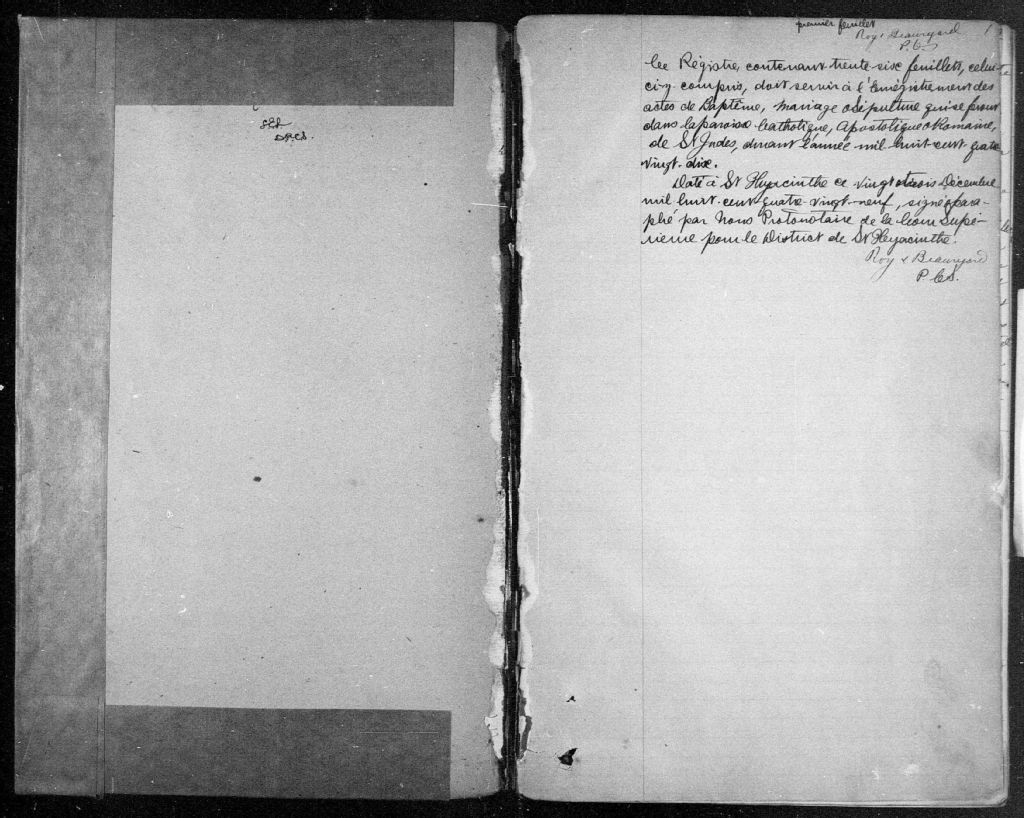 premier feuillet
Roy & Beauregard 1
P.C.S.
Ce Régistre, contenant trente-six feuillets, celui-
ci-y compris, doit servir à l'Enrégistrement des
actes de Baptême, Mariage & Sépulture qui se feront
dans la paroisse Catholique, Apostolique & Romaine,
de St Judes, durant l'année mil huit-cent quatre
vingt-dix.
Daté à St Hyacinthe ce vingt trois Décembre
mil huit-cent quatre-vingt-neuf, signé & para-
phé par Nous Protonotaire de la Cour Supé-
rieure pour le District de St Hyacinthe.
Roy & Beauregard
P.C.S.